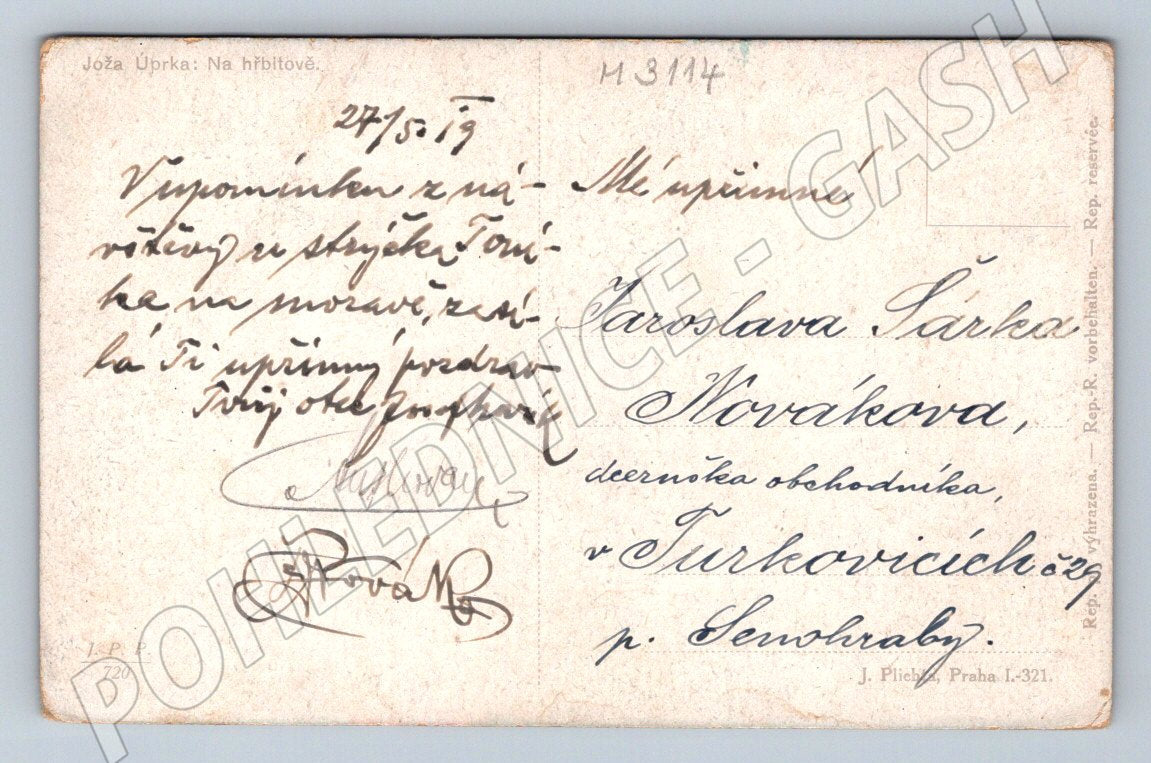 Joža Úprka: Na hřbitově.
M 3114
27/5. 19
Vzpomínku z ná-
vštěvy u strýčka Toní-
ka na moravě, zasí-
lá Ti upřímný pozdrav
Tvůj otec
Novák
I. P. P.
720
Mé upřímné
Jaroslava Šárka
Nováková,
dceruška obchodníka,
v Turkovicích č 29
p. Senohraby.
J. Plichta, Praha I.-321.
Rep. vyhrazena. — Rep.-R. vorbehalten. — Rep. reservée.
POHLEDNICE - GASH